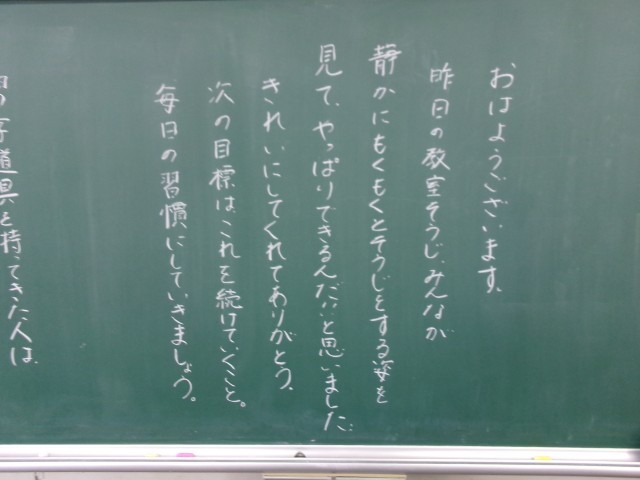 おはようございます。
昨日の教室そうじ、みんなが
静かにもくもくとそうじをする姿を
見て、やっぱりできるんだ!!と思いました。
きれいにしてくれてありがとう。
次の目標は、これを続けていくこと。
毎日の習慣にしていきましょう。
習字道具を持ってきた人は、